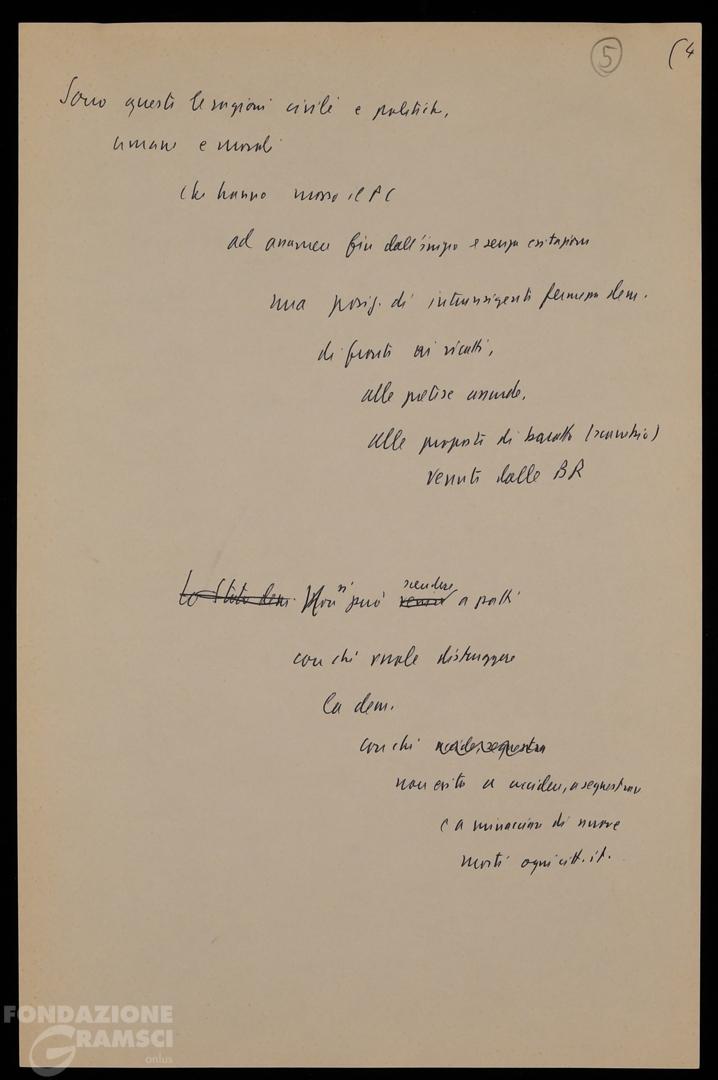 5
(4
Sono queste le ragioni civili e politich,
umane e morali
che hanno mosso il PC
ad assumere fin dall'inizio e senza esitazioni
una posiz. di intransigente fermezza dem.
di fronte ai ricatti,
alle pretese assurde,
alle proposte di baratto (scambio)
venute dalle BR
Lo Stato dem. Non si può venire scendere a patti
con chi vuole distruggere
la dem.
con chi uccide, sequestra
non esita a uccidere, a sequestrare
e a minacciare di nuove
morti ogni citt. it.
FONDAZIONE
GRAMSCI
onlus